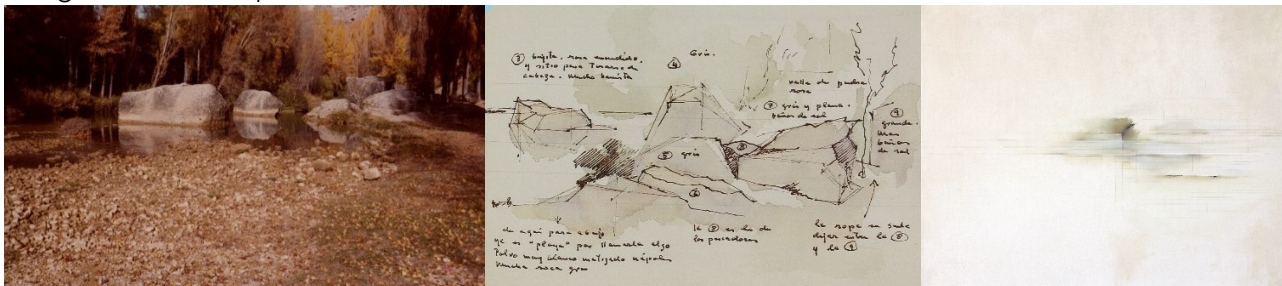 ③ bajita, rosa escondido,
y sitio para tirarse de
cabeza. Mucho bañista
Gris.
④
valle de piedra
rosa
⑦ gris y plana.
baños de sol
⑨
grande.
mas
baños
de sol
⑤ gris
⑧
⑥
de aqui para abajo
ya es "playa" por llamarla algo
Polvo muy blanco matizado
Mucha roca gris
la ⑤ es la de
los pescadores
la ropa se suele
dejar entre la ⑧
y la ⑨